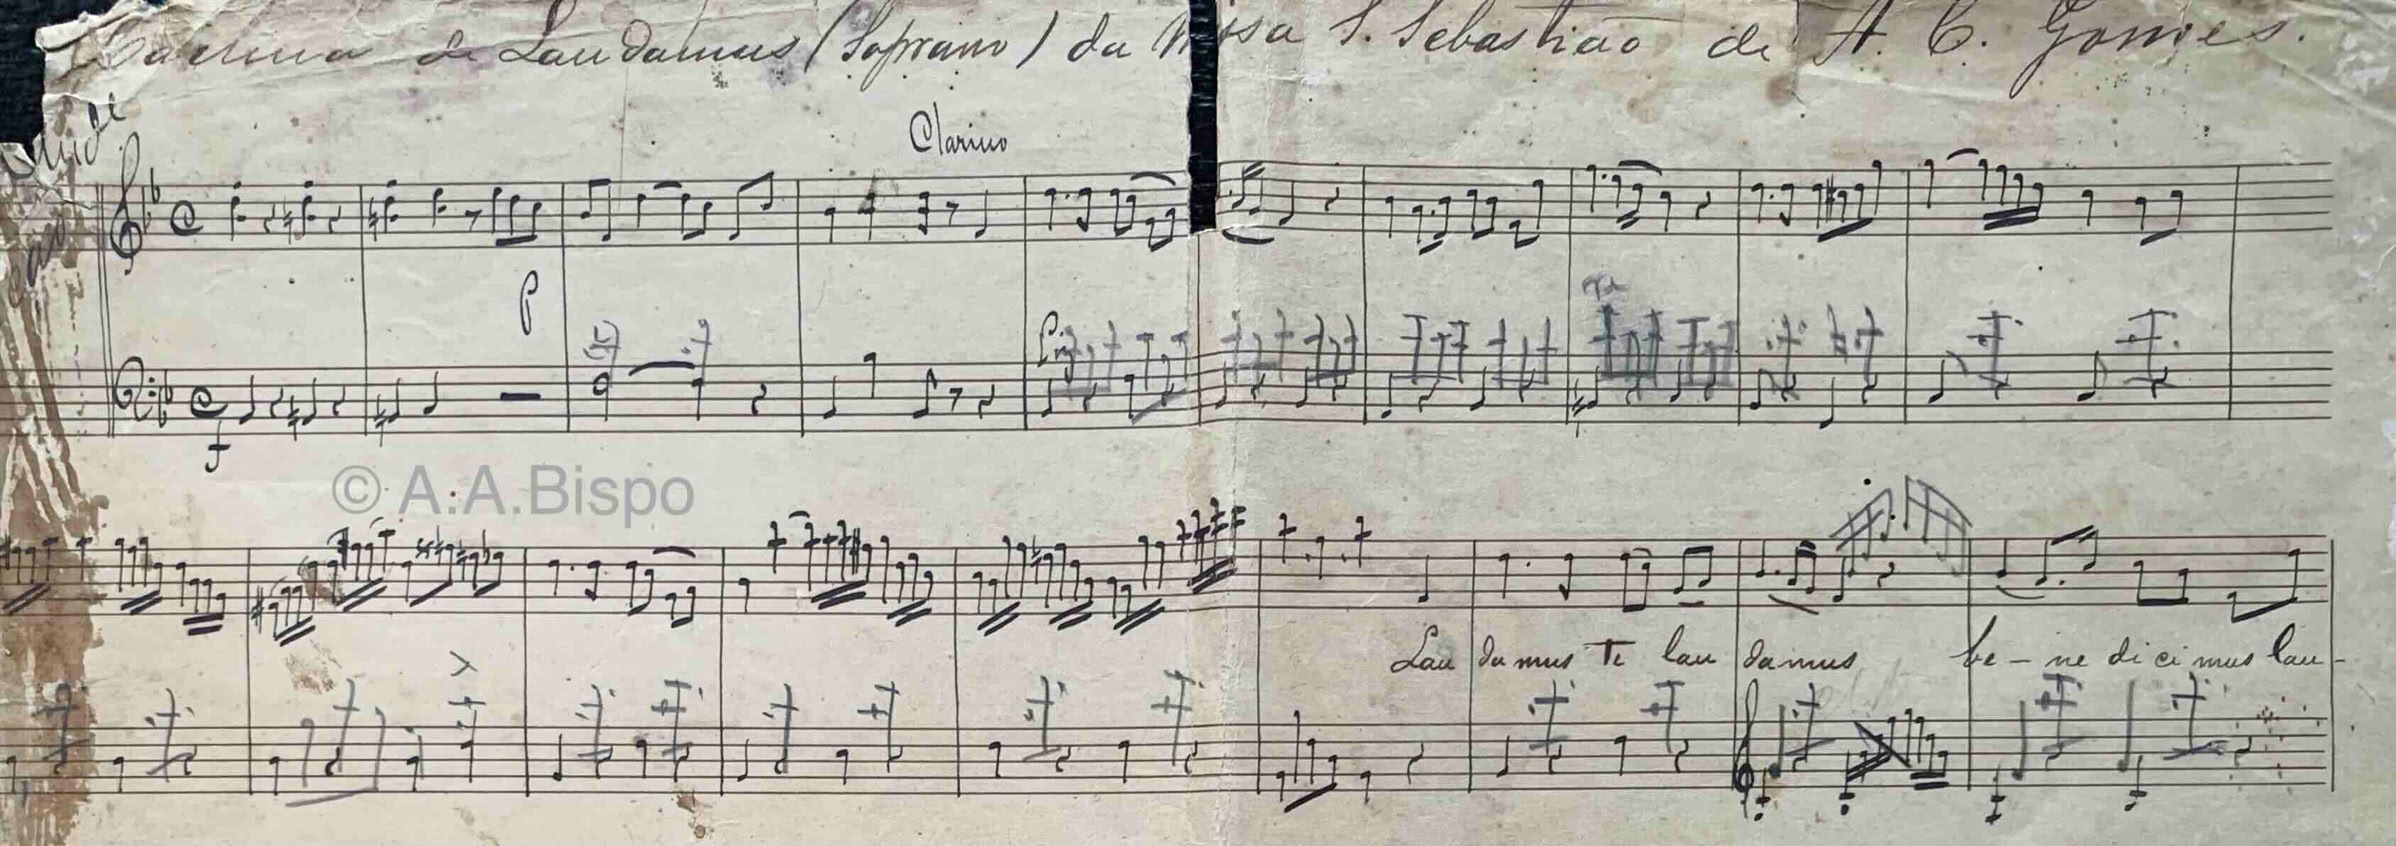 de Laudamus (Soprano) da Missa S. Sebastião de A. C. Gomes.
Clarino
P
f
© A.A.Bispo
Lau damus Te lau damus be - ne di ci mus lau -